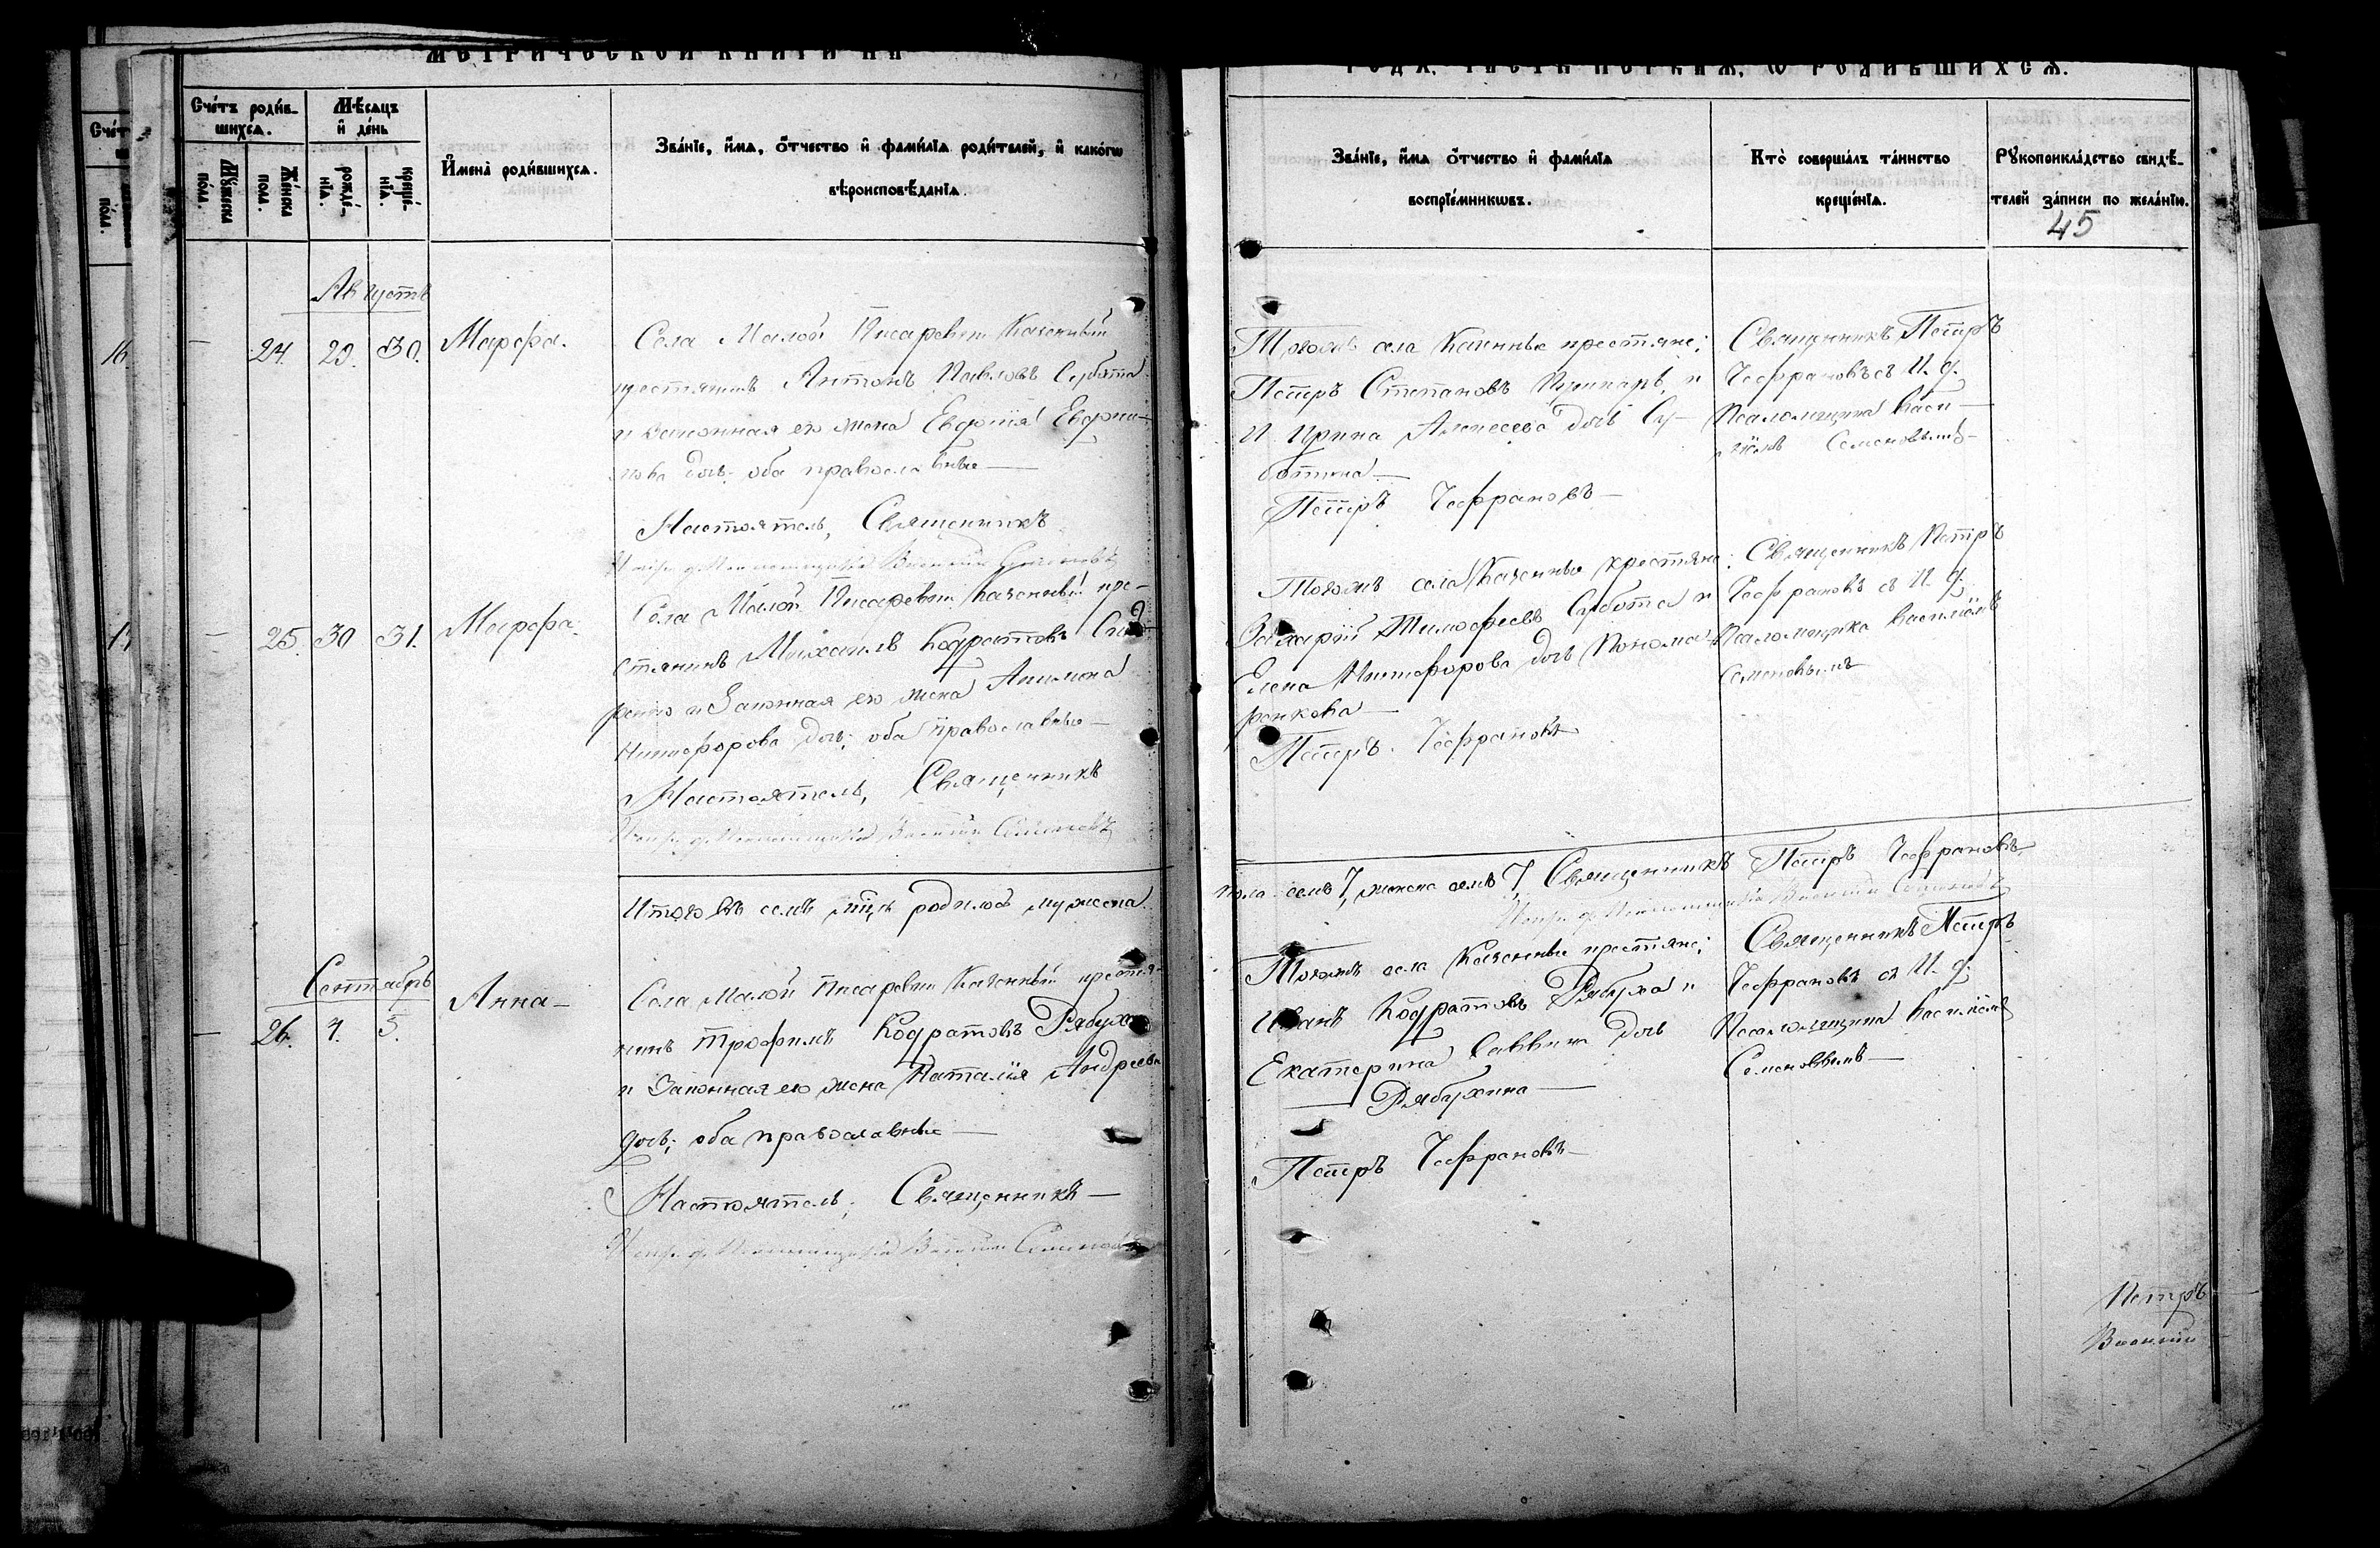 МЕТРИЧЕСКОЙ КНИГИ НА
Сче́тъ роди́в-
шихсѧ.
Мѣ́сѧцъ
и҆ де́нь
И҆мена̀ роди́вшихсѧ.
Зва́нїе, и҆́мѧ, ѻ҆́тчество и҆ фами́лїѧ роди́телей, и҆ како́гѡ
вѣроисповѣ́данїѧ.
Мꙋ́жеска
по́ла.
Же́нска
пола.
рожде́-
нїѧ.
креще́-
нїѧ.
Августъ
24. 29. 30. Марфа.
Села Малой Писаревки Казенный
крестьянинъ Антонъ Павловъ Субота
и законная его жена Евфимія
дочь; оба православные
Настоятель, Священникъ
25. 30 31. Марфа.
Села Малой Писаревки Казенный кре-
стьянинъ Михаилъ Кодратовъ
и Законная его жена Акилина
Никифорова дочь; оба православные
Настоятель, Священникъ
Итого въ семъ м-цѣ родилось мужеска
Сентябрь
26. 4. 5. Анна
Села Малой Писаревки Казенный крестья-
нинъ Трофимъ Кодратовъ Рябуха
и Законная его жена Наталія Андреева
дочь; оба православные
Настоятель, Священникъ
ГОДЪ, ЧАСТЬ ПЕРВАѦ, Ѡ РОДИВШИХСѦ.
Зва́нїе, и҆́мѧ ѻ҆́тчество и҆ фами́лїѧ
воспрїе́мникѡвъ.
Кто̀ соверша́лъ та́инство
креще́нїѧ.
Рꙋкоприкла́дство свидѣ́-
телей за́писи по жела́нїю.
45
Тогожъ села Казенные крестьяне;
Петръ Степановъ и
Ирина Алексеева дочь Су-
ботина
Петръ Чефрановъ
Священникъ Петръ
Чефрановъ съ И. д.
Псаломщика Васи-
ліемъ Семеновымъ
Тогожъ села Казенные крестьяне;
Захарій Тимофеевъ Субота и
Елена Никифорова дочь Понома-
ренкова
Петръ Чефрановъ
Священникъ Петръ
Чефрановъ съ И. д.
Псаломщика Василіемъ
Семеновымъ
пола семь 7, женска семь 7, Священникъ Петръ Чефрановъ
Тогожъ села Казенные крестьяне;
Иванъ Кодратовъ Рябуха и
Екатерина Саввина дочь
Рябухина
Петръ Чефрановъ
Священникъ Петръ
Чефрановъ съ И. д.
Псаломщика Василіемъ
Семеновымъ
Петръ
Василій